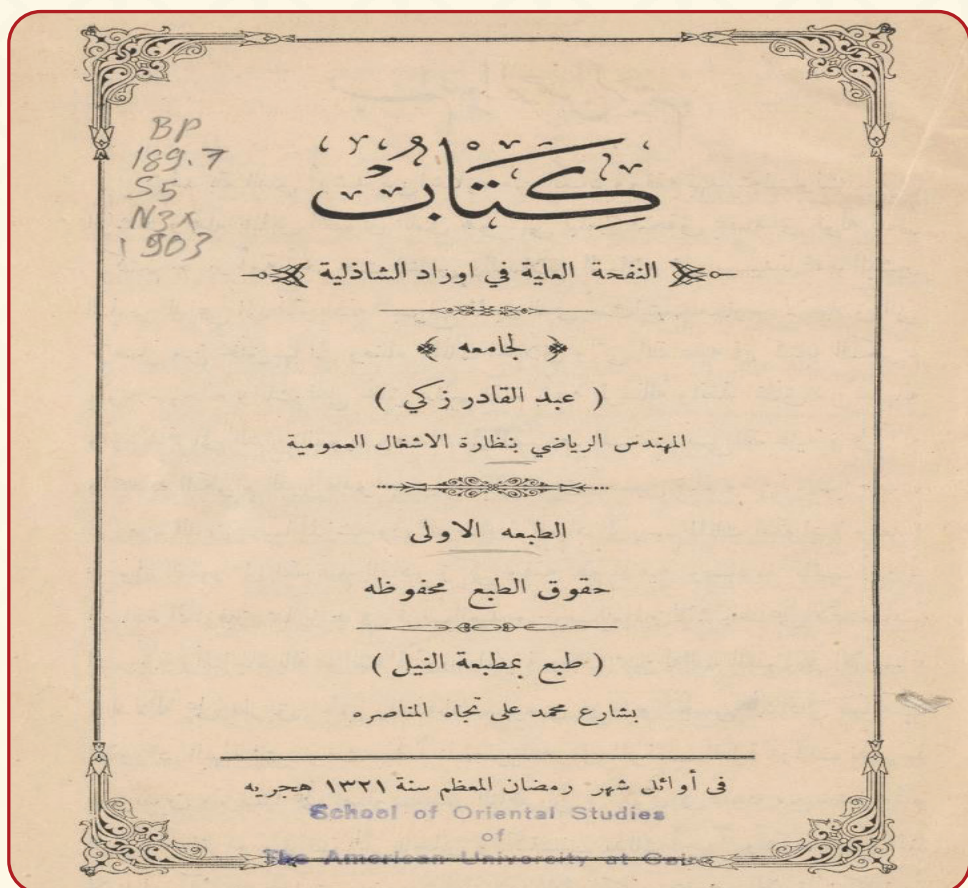 BP
189.7
S5
N3X
1903
كِتَابُ
النفحة العلية في اوراد الشاذلية
﴿ لجامعه ﴾
( عبد القادر زكي )
المهندس الرياضي بنظارة الاشغال العمومية
الطبعه الاولى
حقوق الطبع محفوظه
( طبع بمطبعة النيل )
بشارع محمد على تجاه المناصره
فى أوائل شهر رمضان المعظم سنة ١٣٢١ هجريه
School of Oriental Studies
of
The American University at Cairo